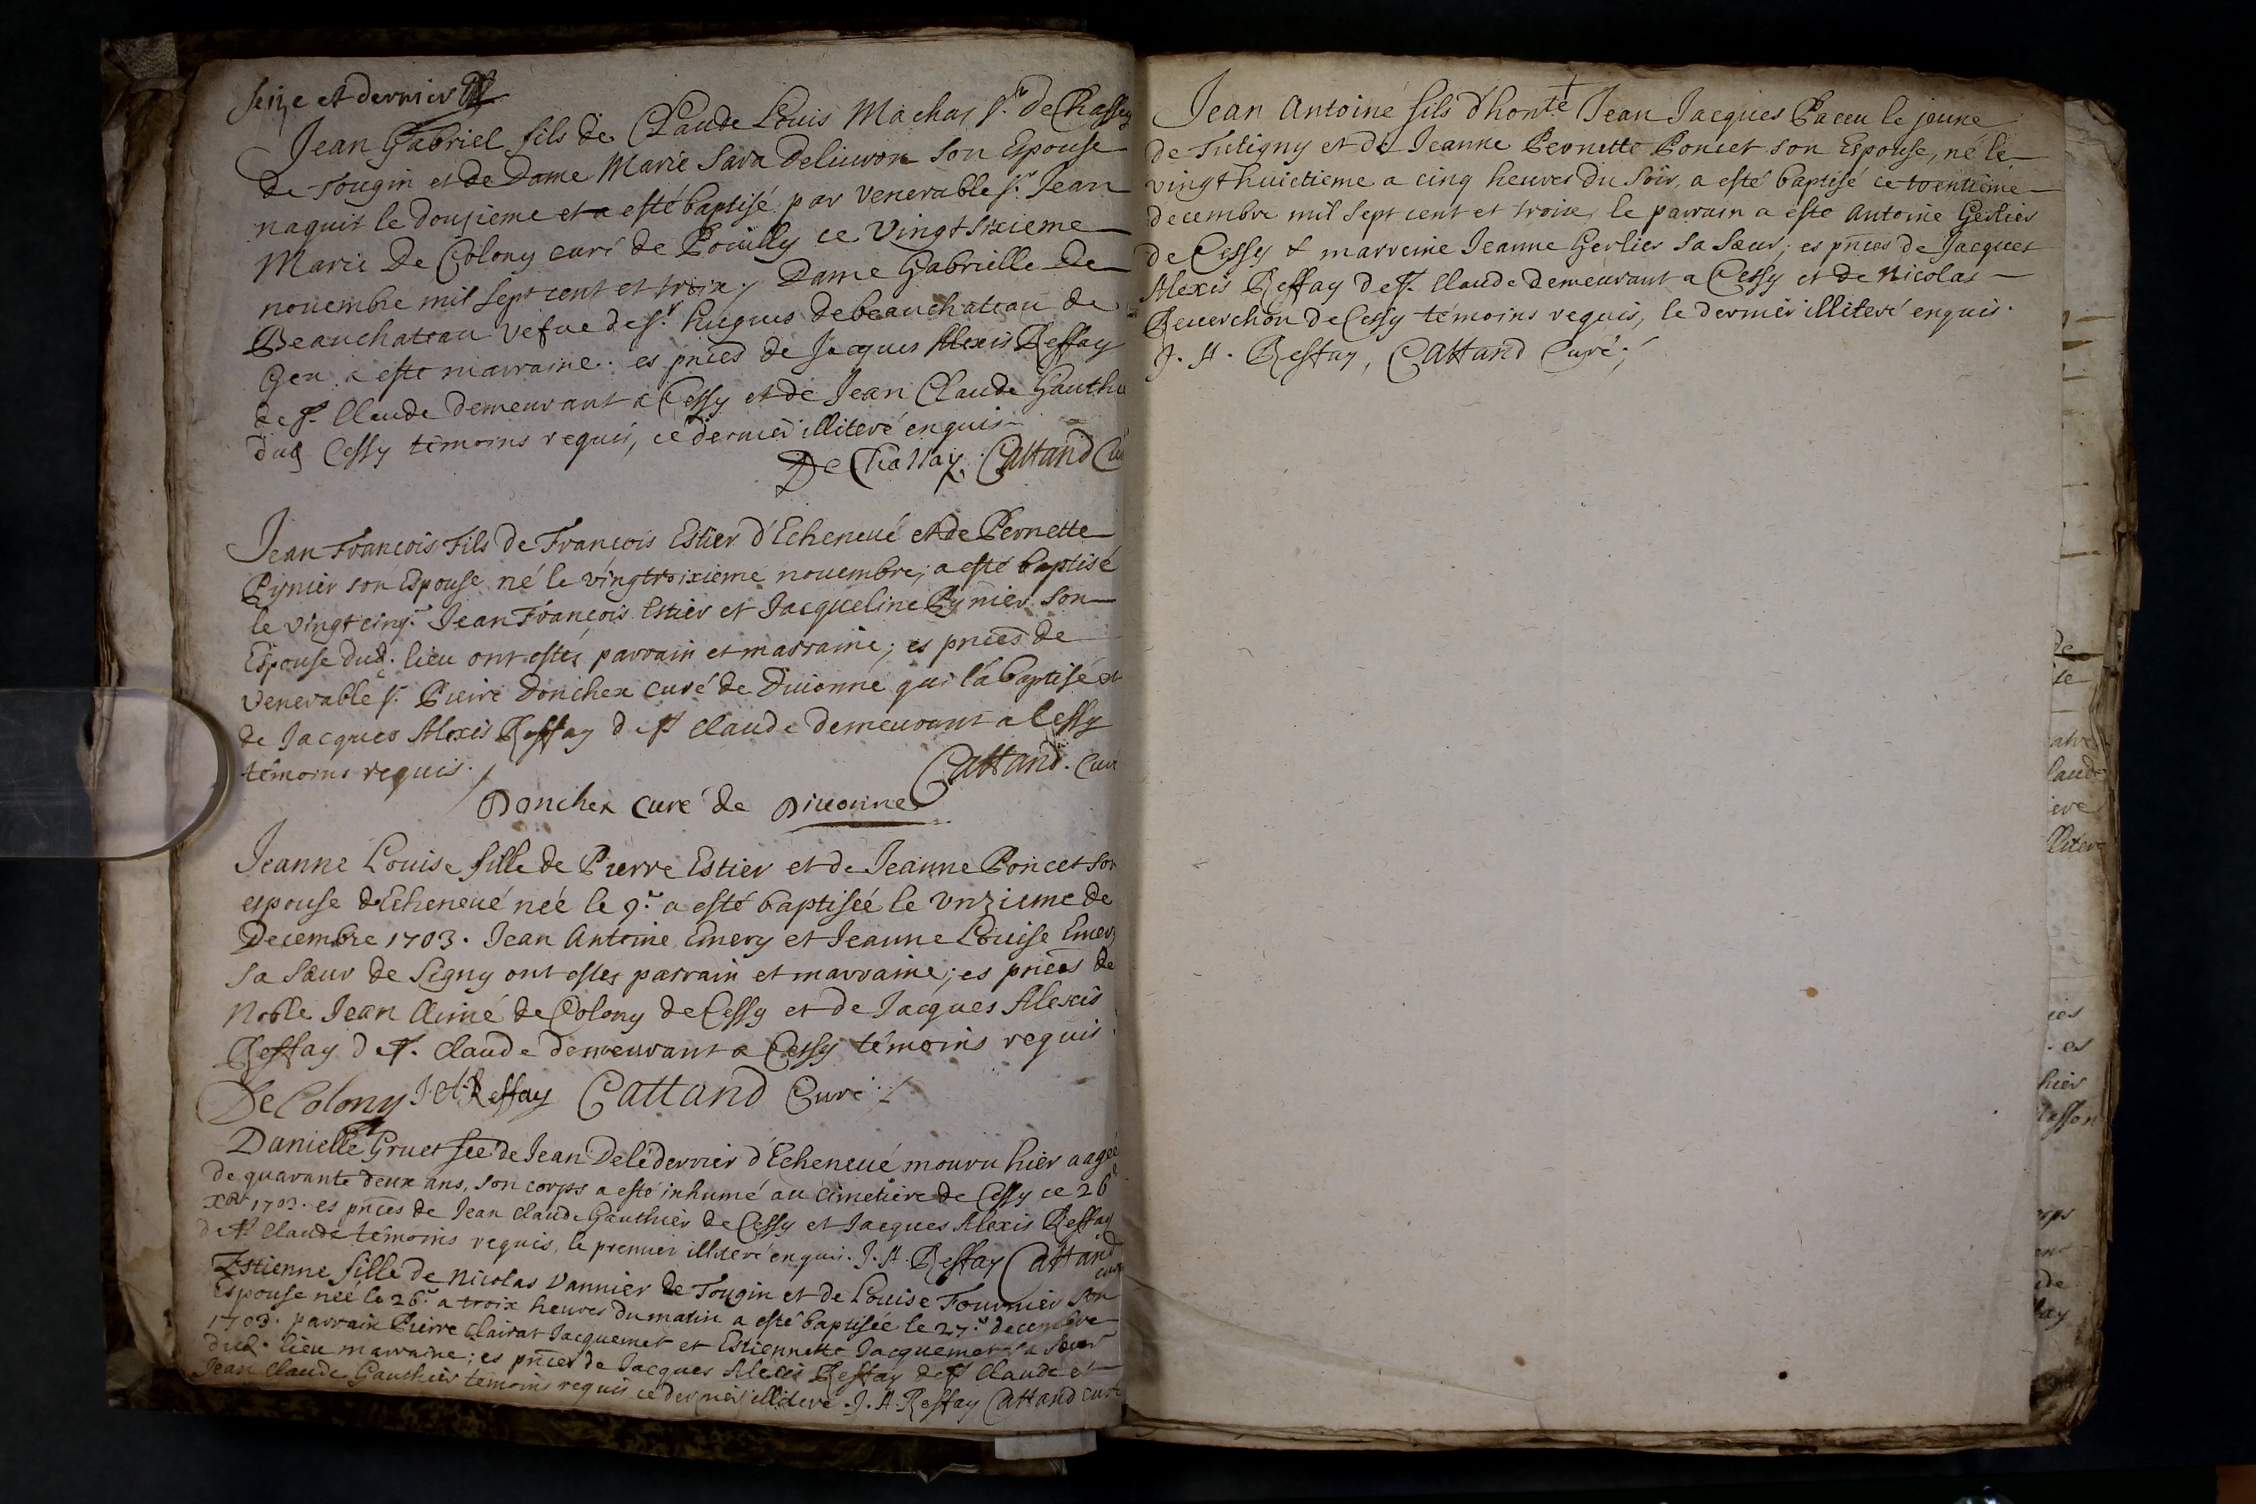 seize et dernier
Jean Gabriel fils de Claude Louis Machas Sr. de Chassey
de Tougin et de Dame Marie Sara Deliuron son Espouse
naquit le douzieme et a esté baptisé par venerable Sr. Jean
Marie De Colony curé de Pouilly ce vingt sixieme
nouembre mil sept cent et troix, Dame Gabrielle De
Beauchateau vefue de Sr. hugues debeauchateau de
Gex a este marraine. es pnces de Jacques Alexis Reffay
de St. Claude demeurant a Cessy et de Jean Claude Gauthier
dud Cessy témoins requis, ce dernier illiteré enquis
De Chassay Cattand Cu
Jean François fils de François Estier d'Echeneué et de Pernette
Pynier son Espouse né le vingtroixieme nouembre, a esté baptisé
le vingt cinq.e Jean François Estier et Jacqueline Pynier son
Espouse dud. lieu ont estés parrain et marraine; es pnces de
venerable Sr. Pierre Donchex curé de Diuonne qui l'a baptisé et
de Jacques Alexis Reffay de St Claude demeurant a Cessy
témoins requis.
Cattand. Curé
Donchex curé de Diuonne
Jeanne Louise fille de Pierre Estier et de Jeanne Poncet son
espouse d'Echeneué née le 9.e a esté baptisée le vnzieme de
Decembre 1703. Jean Antoine Emery et Jeanne Louise Emery
sa sœur de Segny ont estés parrain et marraine; es pnces de
Noble Jean Aimé de Colony de Cessy et de Jacques Alexis
Reffay de St. Claude demeurant a Cessy témoins requis.
De Colony J. A. Reffay Cattand Curé
Danielle Gruet fee de Jean Deléderrier d'Echeneué mouru hier aagée
de quarante deux ans, son corps a esté inhumé au cimetiere de Cessy ce 26e
Xbr 1703. es pnces de Jean Claude Gauthier de Cessy et Jacques Alexis Reffay
de St Claude témoins requis, le premier illiteré enquis. J. A. Reffay Cattand
curé
Estienne fille de Nicolas Vannier de Tougin et de Louise Fournier son
Espouse née le 26.e a troix heures du matin a esté baptisée le 27.e decembre
1703. parrain Pierre Clairat Jacquemet et Estiennette Jacquemet sa sœur
dud. lieu marraine; es pnces de Jacques Alexis Reffay de St Claude et
Jean Claude Gauthier témoins requis ce dernier illiteré. J. A. Reffay Cattand curé
Jean Antoine fils d'honte Jean Jacques Paccu le jeune
de Tutigny et de Jeanne Pernette Poncet son Espouse, né le
vingt huictieme a cinq heures du soir, a esté baptisé ce trentieme
decembre mil sept cent et troix, le parrain a este Antoine Gerlier
de Cessy & marreine Jeanne Gerlier sa sœur; es pnces de Jacques
Alexis Reffay de St. Claude demeurant a Cessy et de Nicolas
de Cessy témoins requis, le dernier illiteré enquis.
J. A. Reffay, Cattand Curé